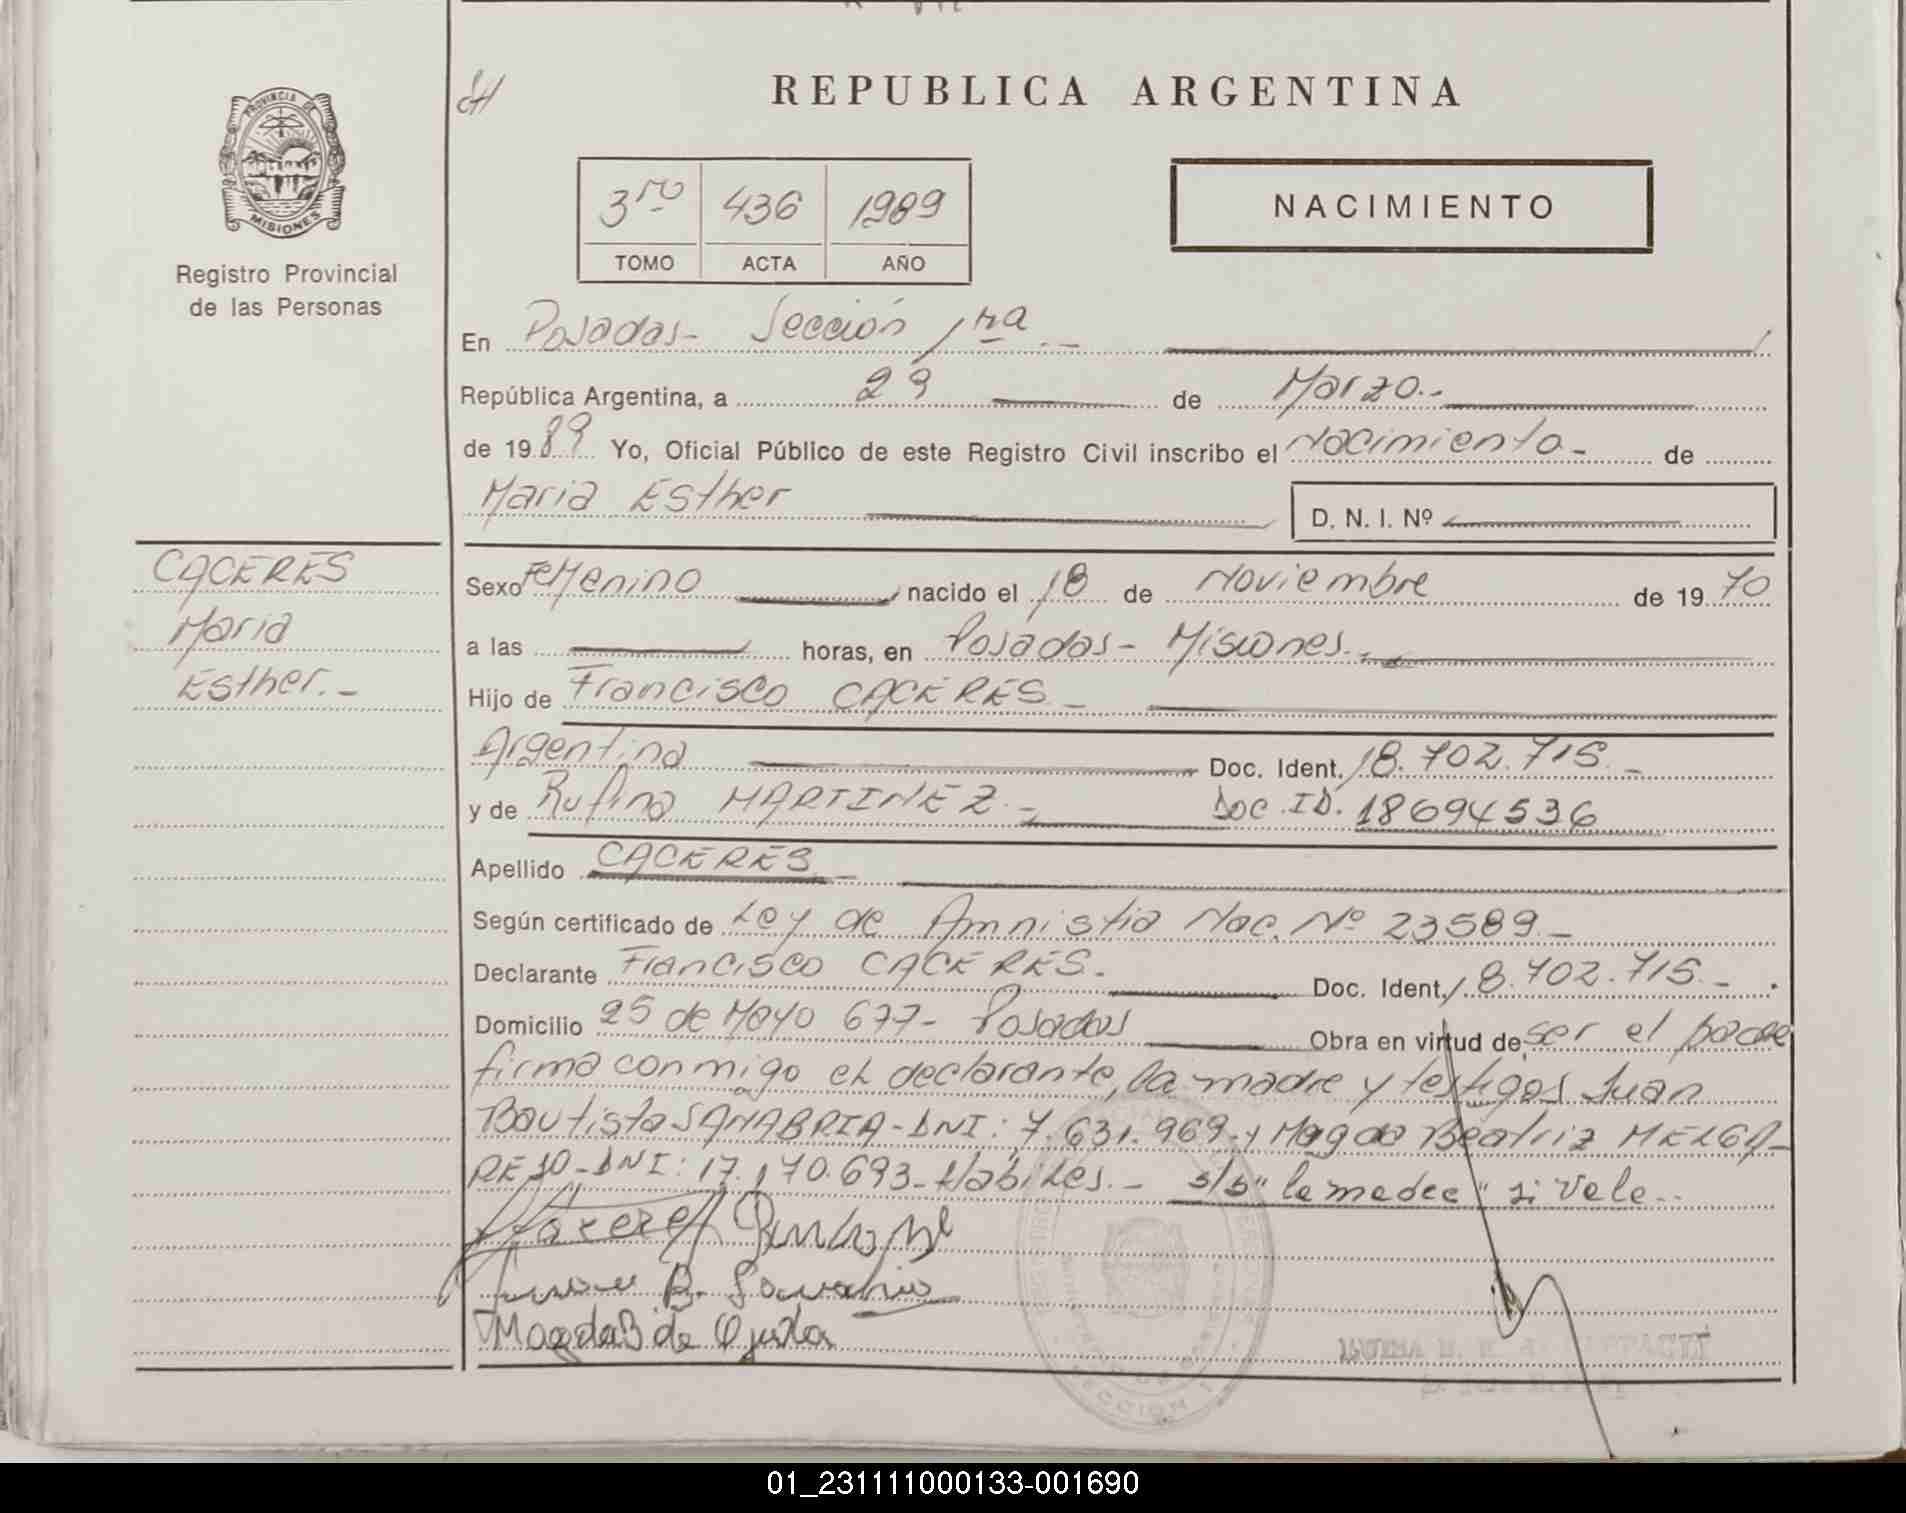 REPUBLICA ARGENTINA
PROVINCIA DE
MISIONES
Registro Provincial
de las Personas
3ro 436 1989
TOMO ACTA AÑO
NACIMIENTO
En Posadas- Sección 1ra.-
República Argentina, a 29 de Marzo.-
de 1989 Yo, Oficial Público de este Registro Civil inscribo el Nacimiento- de
Maria Esther D. N. I. Nº
CACERES
Maria
Esther.-
Sexo Femenino nacido el 18 de Noviembre de 1970
a las horas, en Posadas- Misiones.-
Hijo de Francisco CACERES-
Argentina Doc. Ident. 18.702.715.-
y de Rufina MARTINEZ.- Doc. ID. 18694536
Apellido CACERES-
Según certificado de Ley de Amnistia Nac. Nº 23589.-
Declarante Francisco CACERES. Doc. Ident. 18.702.715.-
Domicilio 25 de Mayo 677- Posadas Obra en virtud de ser el padre
firma conmigo el declarante, la madre y testigos Juan
Bautista SANABRIA-DNI: 7.631.969-y Magda Beatriz MELGA-
REJO-DNI: 17.170.693-Habiles.- s/b "la madre" si vale.-
Magda B de Ojeda
SECCION 1
01_231111000133-001690